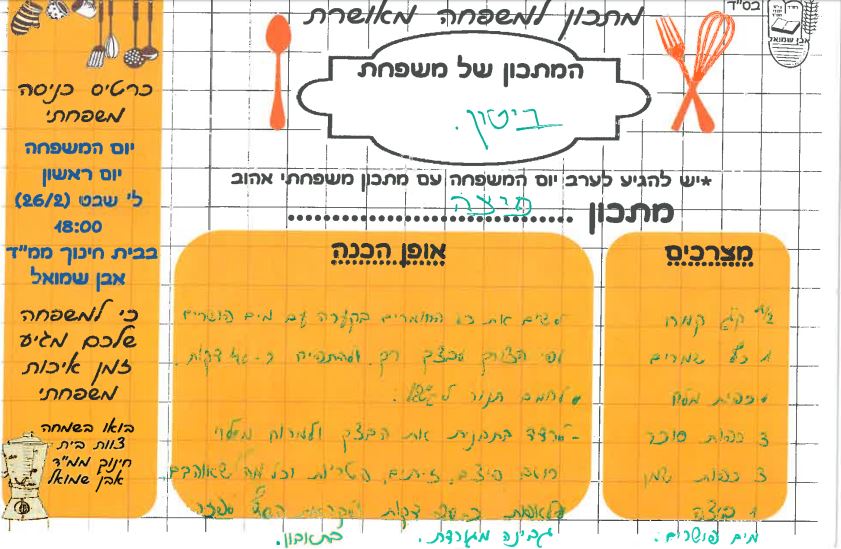 בס"ד
אבן שמואל
מתכון למשפחה מאושרת
המתכון של משפחת
ביטון.
*יש להגיע לערב יום המשפחה עם מתכון משפחתי אהוב
מתכון פיצה
מצרכים
קמח
1 כף שמרים
כפית מלח
3 כפות סוכר
3 כפות שמן
1 ביצה
מים פושרים.
אופן הכנה
את כל החומרים בקערה עם מים פושרים
לפי הצורך לבצק רך. ולהתפיח כ-40 דקות.
לחמם תנור ל
לרדד בתבנית את הבצק ולמרוח מעליו
רוטב פיצה, זיתים, פטריות וכל מה שאוהבים.
לאפות דקות לקראת הסוף לפזר
גבינה מגורדת. בתאבון.
כרטיס כניסה
משפחתי
יום המשפחה
יום ראשון
ל' שבט (26/2)
18:00
בבית חינוך ממ"ד
אבן שמואל
כי למשפחה
שלכם מגיע
זמן איכות
משפחתי
בואו בשמחה
צוות בית
חינוך ממ"ד
אבן שמואל